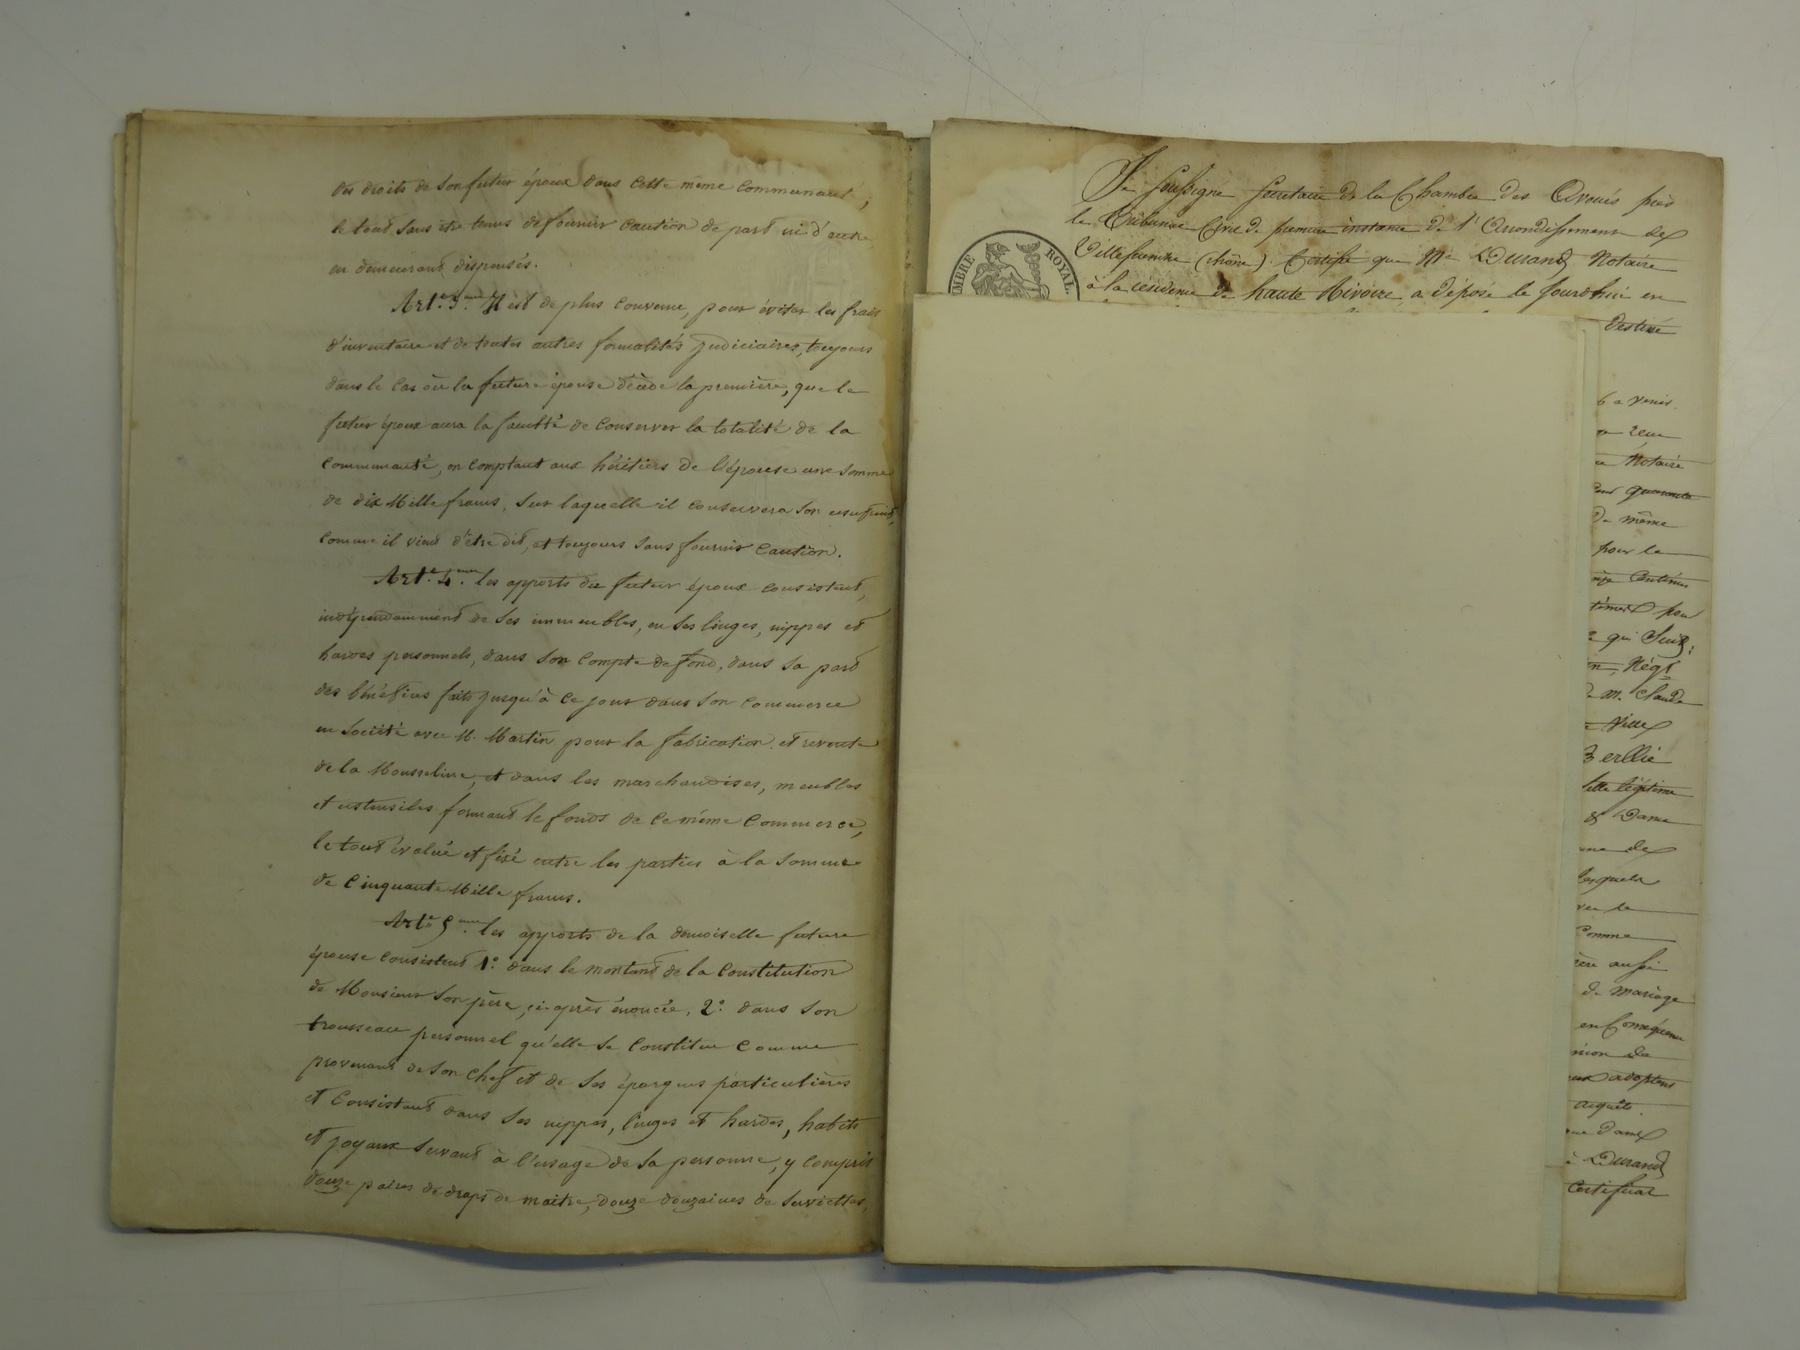 des droits de son futur époux dans cette même communauté;
le tout sans être tenus de fournir caution de part ni d'autre
en demeurant dispensés.
Art.e 3.eme Il est de plus convenu, pour éviter les frais
d'inventaire et de toutes autres formalités judiciaires, toujours
dans le cas où la future épouse décède la première, que le
futur époux aura la faculté de conserver la totalité de la
communauté, en comptant aux héritiers de l'épouse une somme
de dix Mille francs, sur laquelle il conservera son usufruit,
comme il vient d'être dit, et toujours sans fournir caution.
Art.e 4.eme les apports du futur époux consistent,
indépendamment de ses immeubles, en ses linges, nippes et
hardes personnels, dans son compte de fond, dans sa part
des bénéfices faits jusqu'à ce jour dans son commerce
en société avec M. Martin pour la fabrication et revente
de la Mousseline, et dans les marchandises, meubles
et ustensiles formant le fonds de ce même commerce,
le tout évalué et fixé entre les parties à la somme
de Cinquante Mille francs.
Art.e 5.eme les apports de la demoiselle future
épouse consistent 1.° dans le montant de la Constitution
de Monsieur son père, ci-après énoncée, 2.° dans son
trousseau personnel qu'elle se constitue comme
provenant de son chef et de ses épargnes particulières
et consistant dans ses nippes, linges et hardes, habits
et joyaux servant à l'usage de sa personne, y compris
douze paires de draps de maitre, douze douzaines de serviettes,
TIMBRE ROYAL.
Je soussigné Secrétaire de la Chambre des Avoués près
le Tribunal Civil de première instance de l'Arrondissement de
Villefranche (rhône) Certifie que Me Durand Notaire
à la résidence de haute Rivoire a déposé ce jourd'hui en
destiné
à venir.
Notaire
quarante
de même
pour la
Centimes
pour
qui Suit;
Négt
de m. Claude
Ville
Berllié
légitime
& Dame
de
lesquels
la
Comme
aussi
de mariage
en Conséquence
de
adoptent
acquêts.
Dame
à Durand
Certificat